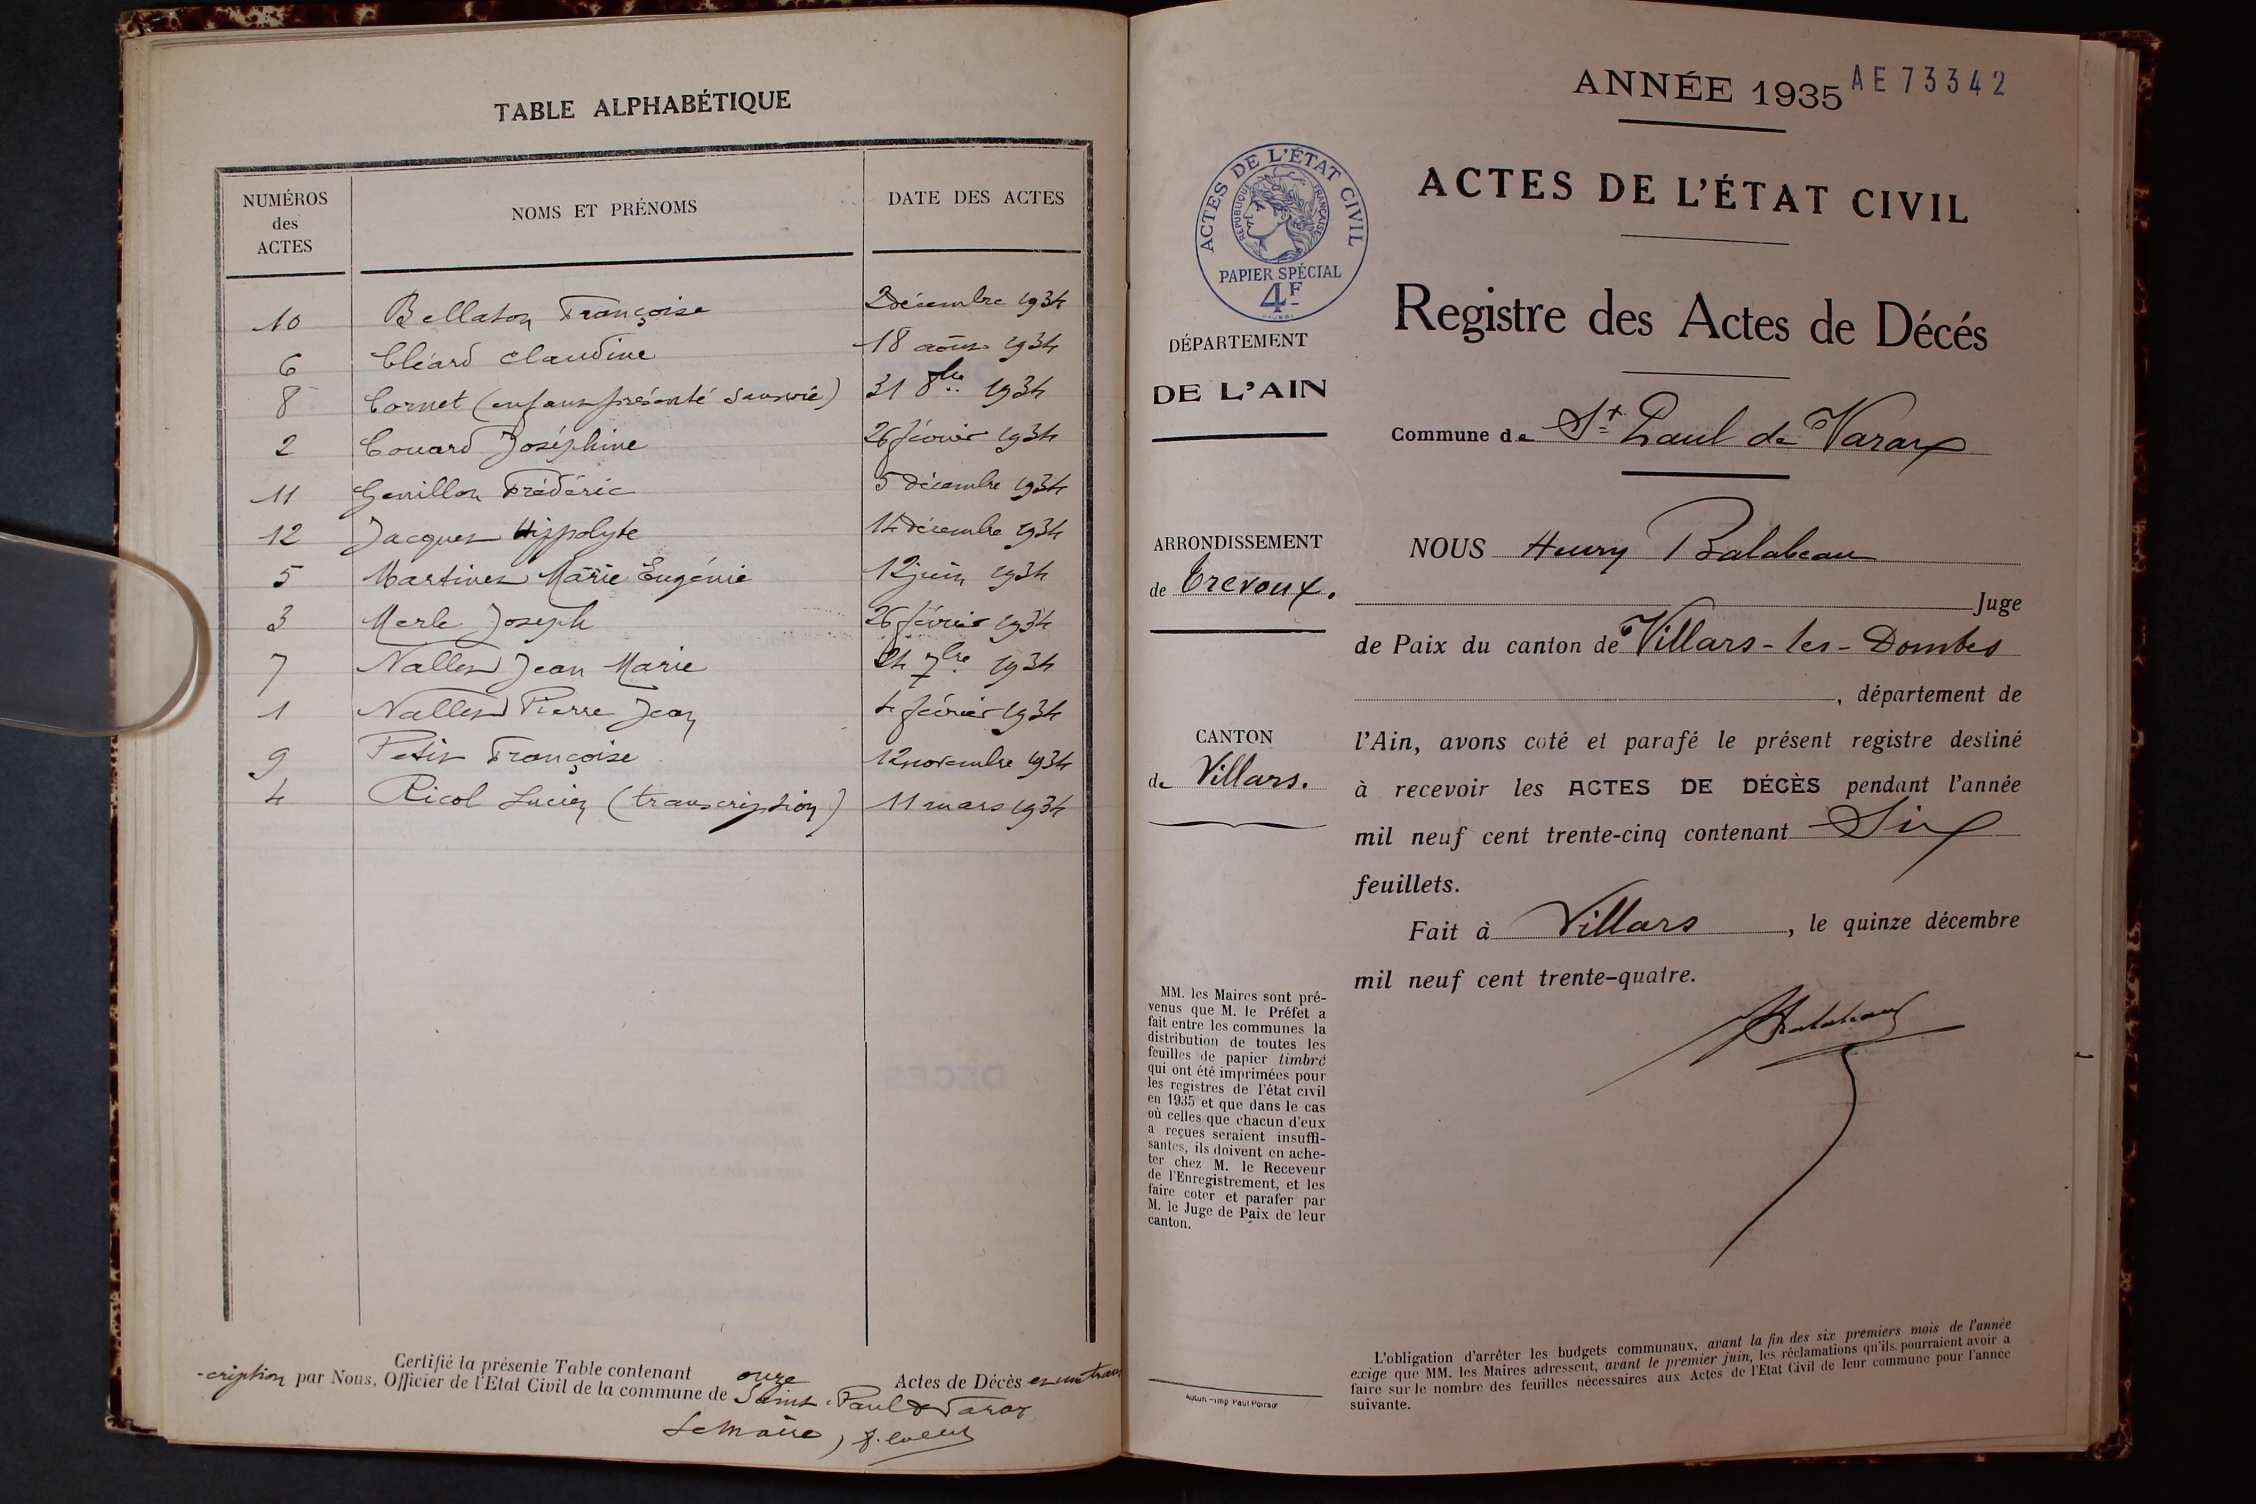 TABLE ALPHABÉTIQUE
NUMÉROS des ACTES NOMS ET PRÉNOMS DATE DES ACTES
10 Bellaton Françoise 2 décembre 1934
6 Cléard Claudine 18 août 1934
8 Cornet (enfant présenté sans vie) 31 8bre 1934
2 Couard Joséphine 26 février 1934
11 Genillon Frédéric 5 décembre 1934
12 Jacques Hippolyte 14 décembre 1934
5 Martinet Marie Eugénie 12 juin 1934
3 Merle Joseph 26 février 1934
7 Nallet Jean Marie 24 7bre 1934
1 Nallet Pierre Jean 4 février 1934
9 Petit Françoise 12 novembre 1934
4 Ricol Lucien (transcription) 11 mars 1934
Certifié la présente Table contenant onze Actes de Décès et une trans
-cription par Nous, Officier de l'Etat Civil de la commune de Saint-Paul de Varax
Le Maire,
ANNÉE 1935 AE 73342
ACTES DE L'ÉTAT CIVIL
RÉPUBLIQUE FRANÇAISE
PAPIER SPÉCIAL
4F
ACTES DE L'ÉTAT CIVIL
Registre des Actes de Décés
Commune de St Paul de Varax
DÉPARTEMENT
DE L'AIN
ARRONDISSEMENT
de Trevoux.
CANTON
de Villars.
MM. les Maires sont pré-
venus que M. le Préfet a
fait entre les communes la
distribution de toutes les
feuilles de papier timbré
qui ont été imprimées pour
les registres de l'état civil
en 1935 et que dans le cas
où celles que chacun d'eux
a reçues seraient insuffi-
santes, ils doivent en ache-
ter chez M. le Receveur
de l'Enregistrement, et les
faire coter et parafer par
M. le Juge de Paix de leur
canton.
Autun - Imp Paul Poirson
NOUS Henry Balabeau
Juge
de Paix du canton de Villars-les-Dombes
, département de
l'Ain, avons coté et parafé le présent registre destiné
à recevoir les ACTES DE DÉCÈS pendant l'année
mil neuf cent trente-cinq contenant Six
feuillets.
Fait à Villars, le quinze décembre
mil neuf cent trente-quatre.
L'obligation d'arrêter les budgets communaux, avant la fin des six premiers mois de l'année
exige que MM. les Maires adressent, avant le premier juin, les réclamations qu'ils pourraient avoir à
faire sur le nombre des feuilles nécessaires aux Actes de l'Etat Civil de leur commune pour l'année
suivante.